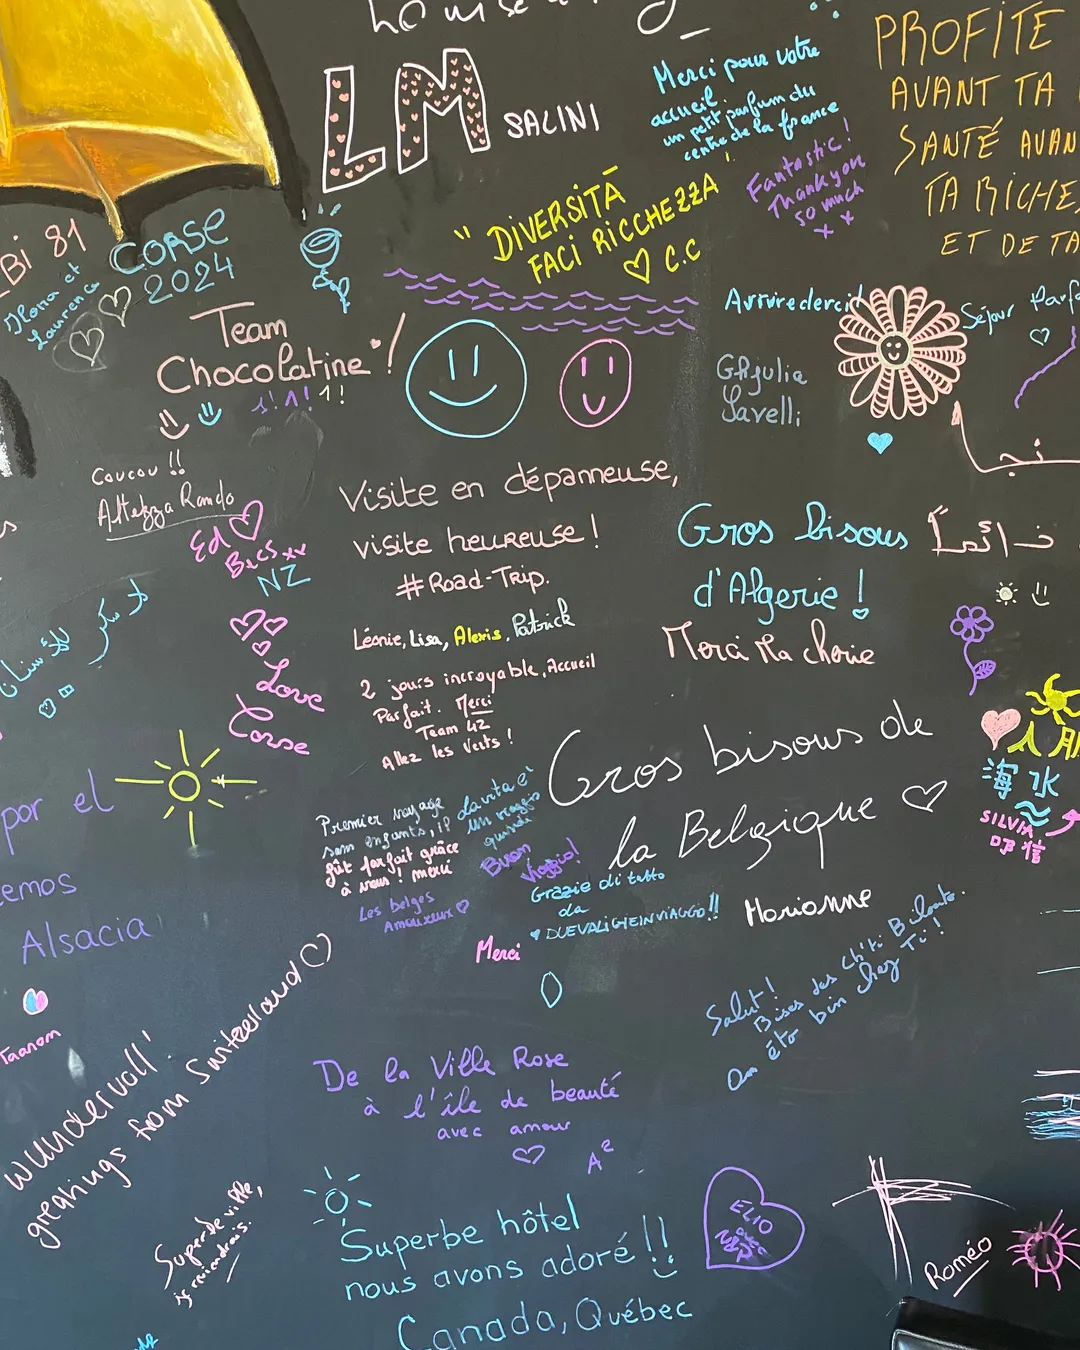 LM SALINI
Merci pour votre
accueil
un petit parfum du
centre de la france
Fantastic!
Thank you
so much
x x
PROFITE
AVANT TA
SANTÉ AVAN
TA RICHE
ET DE TA
"DIVERSITÀ
FACI RICCHEZZA
♡ C.C
Bi 81
et
Laurence
CORSE
2024
Team
Chocolatine !
1! 1! 1!
Arrivederci
Séjour Parfa
Ghjulia
Savelli
Coucou !!
Altezza Rando
Ed
NZ
Love
Corse
Visite en dépanneuse,
visite heureuse !
#Road-Trip.
Léonie, Lisa, Alexis, Patrick
2 jours incroyable, Accueil
Parfait. Merci
Team 42
Allez les Verts !
Gros bisous
d'Algerie !
Merci Ma cherie
Gros bisous de
la Belgique ♡
Marianne
海水
SILVIA
por el
emos
Alsacia
Taanom
Premier voyage
sans enfants, il
fût parfait grâce
à vous ! merci
Les belges
Amoureux ♡
la vita è
un viaggio
quindi
Buon
viaggio!
Grazie di tutto
da
♥ DUEVALIGIEINVIAGGIO!!
Merci
Salut!
Bises des Ch'ti Biloute.
On éto bin chez Ti !
wundervoll!
greatings from Switzerland ♡
De la Ville Rose
à l'île de beauté
avec amour
♡ A²
Superbe ville,
je reviendrais.
Superbe hôtel
nous avons adoré !!
Canada, Québec
ELIO
Roméo